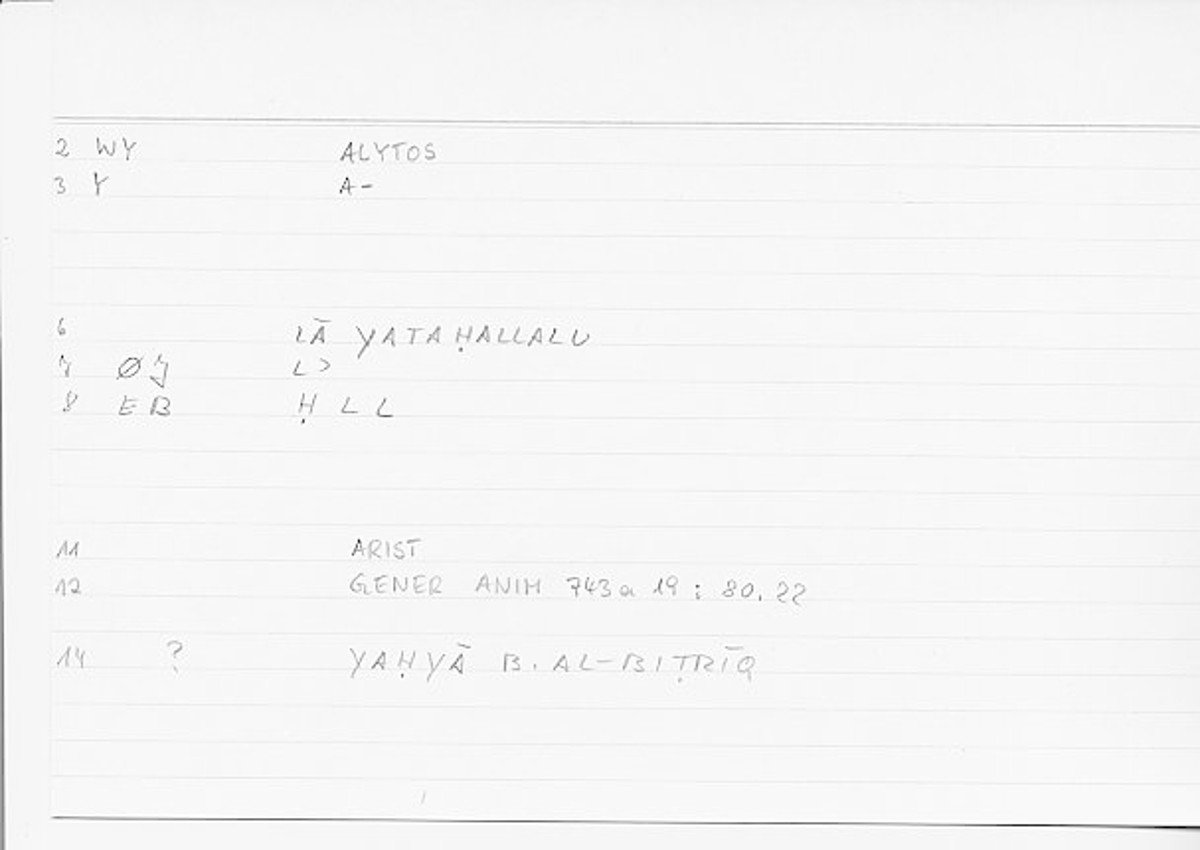 2 WY ALYTOS
3 Y A-
6 LĀ YATAḤALLALU
7 ØJ L>
8 EB Ḥ L L
11 ARIST
12 GENER ANIM 743a 19 ; 80.22
14 ? YAḤYĀ B. AL-BIṬRĪQ